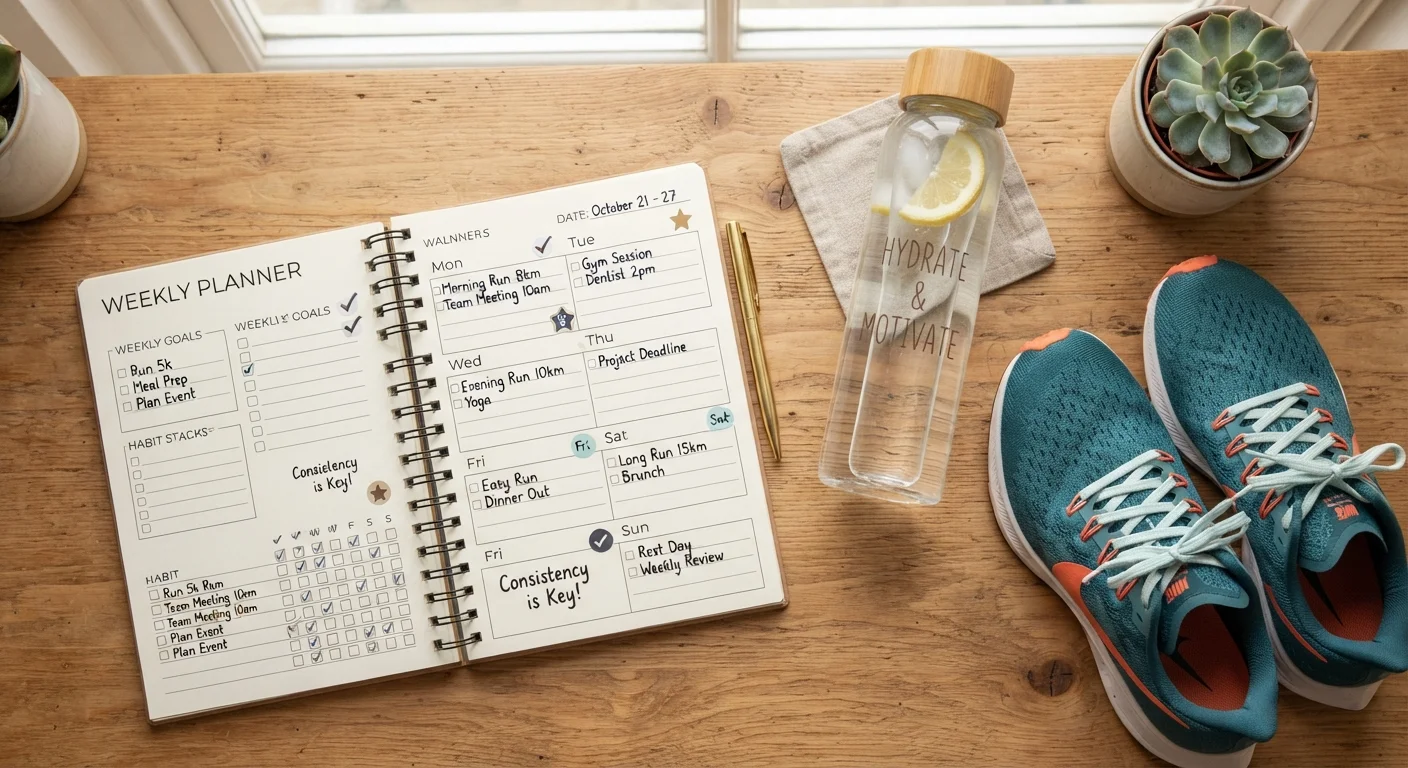 WEEKLY PLANNER
WEEKLY GOALS
Run 5k
Meal Prep
Plan Event
WEEKLY GOALS
HABIT STACKS
Consistency
is Key!
F S S
HABIT
Run 5k Run
Team Meeting 10am
Team Meeting 10am
Plan Event
Plan Event
WALNNERS
DATE: October 21 - 27
Mon
Morning Run 8km
Team Meeting 10am
Tue
Gym Session
Dentist 2pm
Wed
Evening Run 10km
Yoga
Thu
Project Deadline
Fri
Fri
Easy Run
Dinner Out
Sat
Sat
Long Run 15km
Brunch
Fri
Consistency
is Key!
Sun
Rest Day
Weekly Review
HYDRATE
&
MOTIVATE